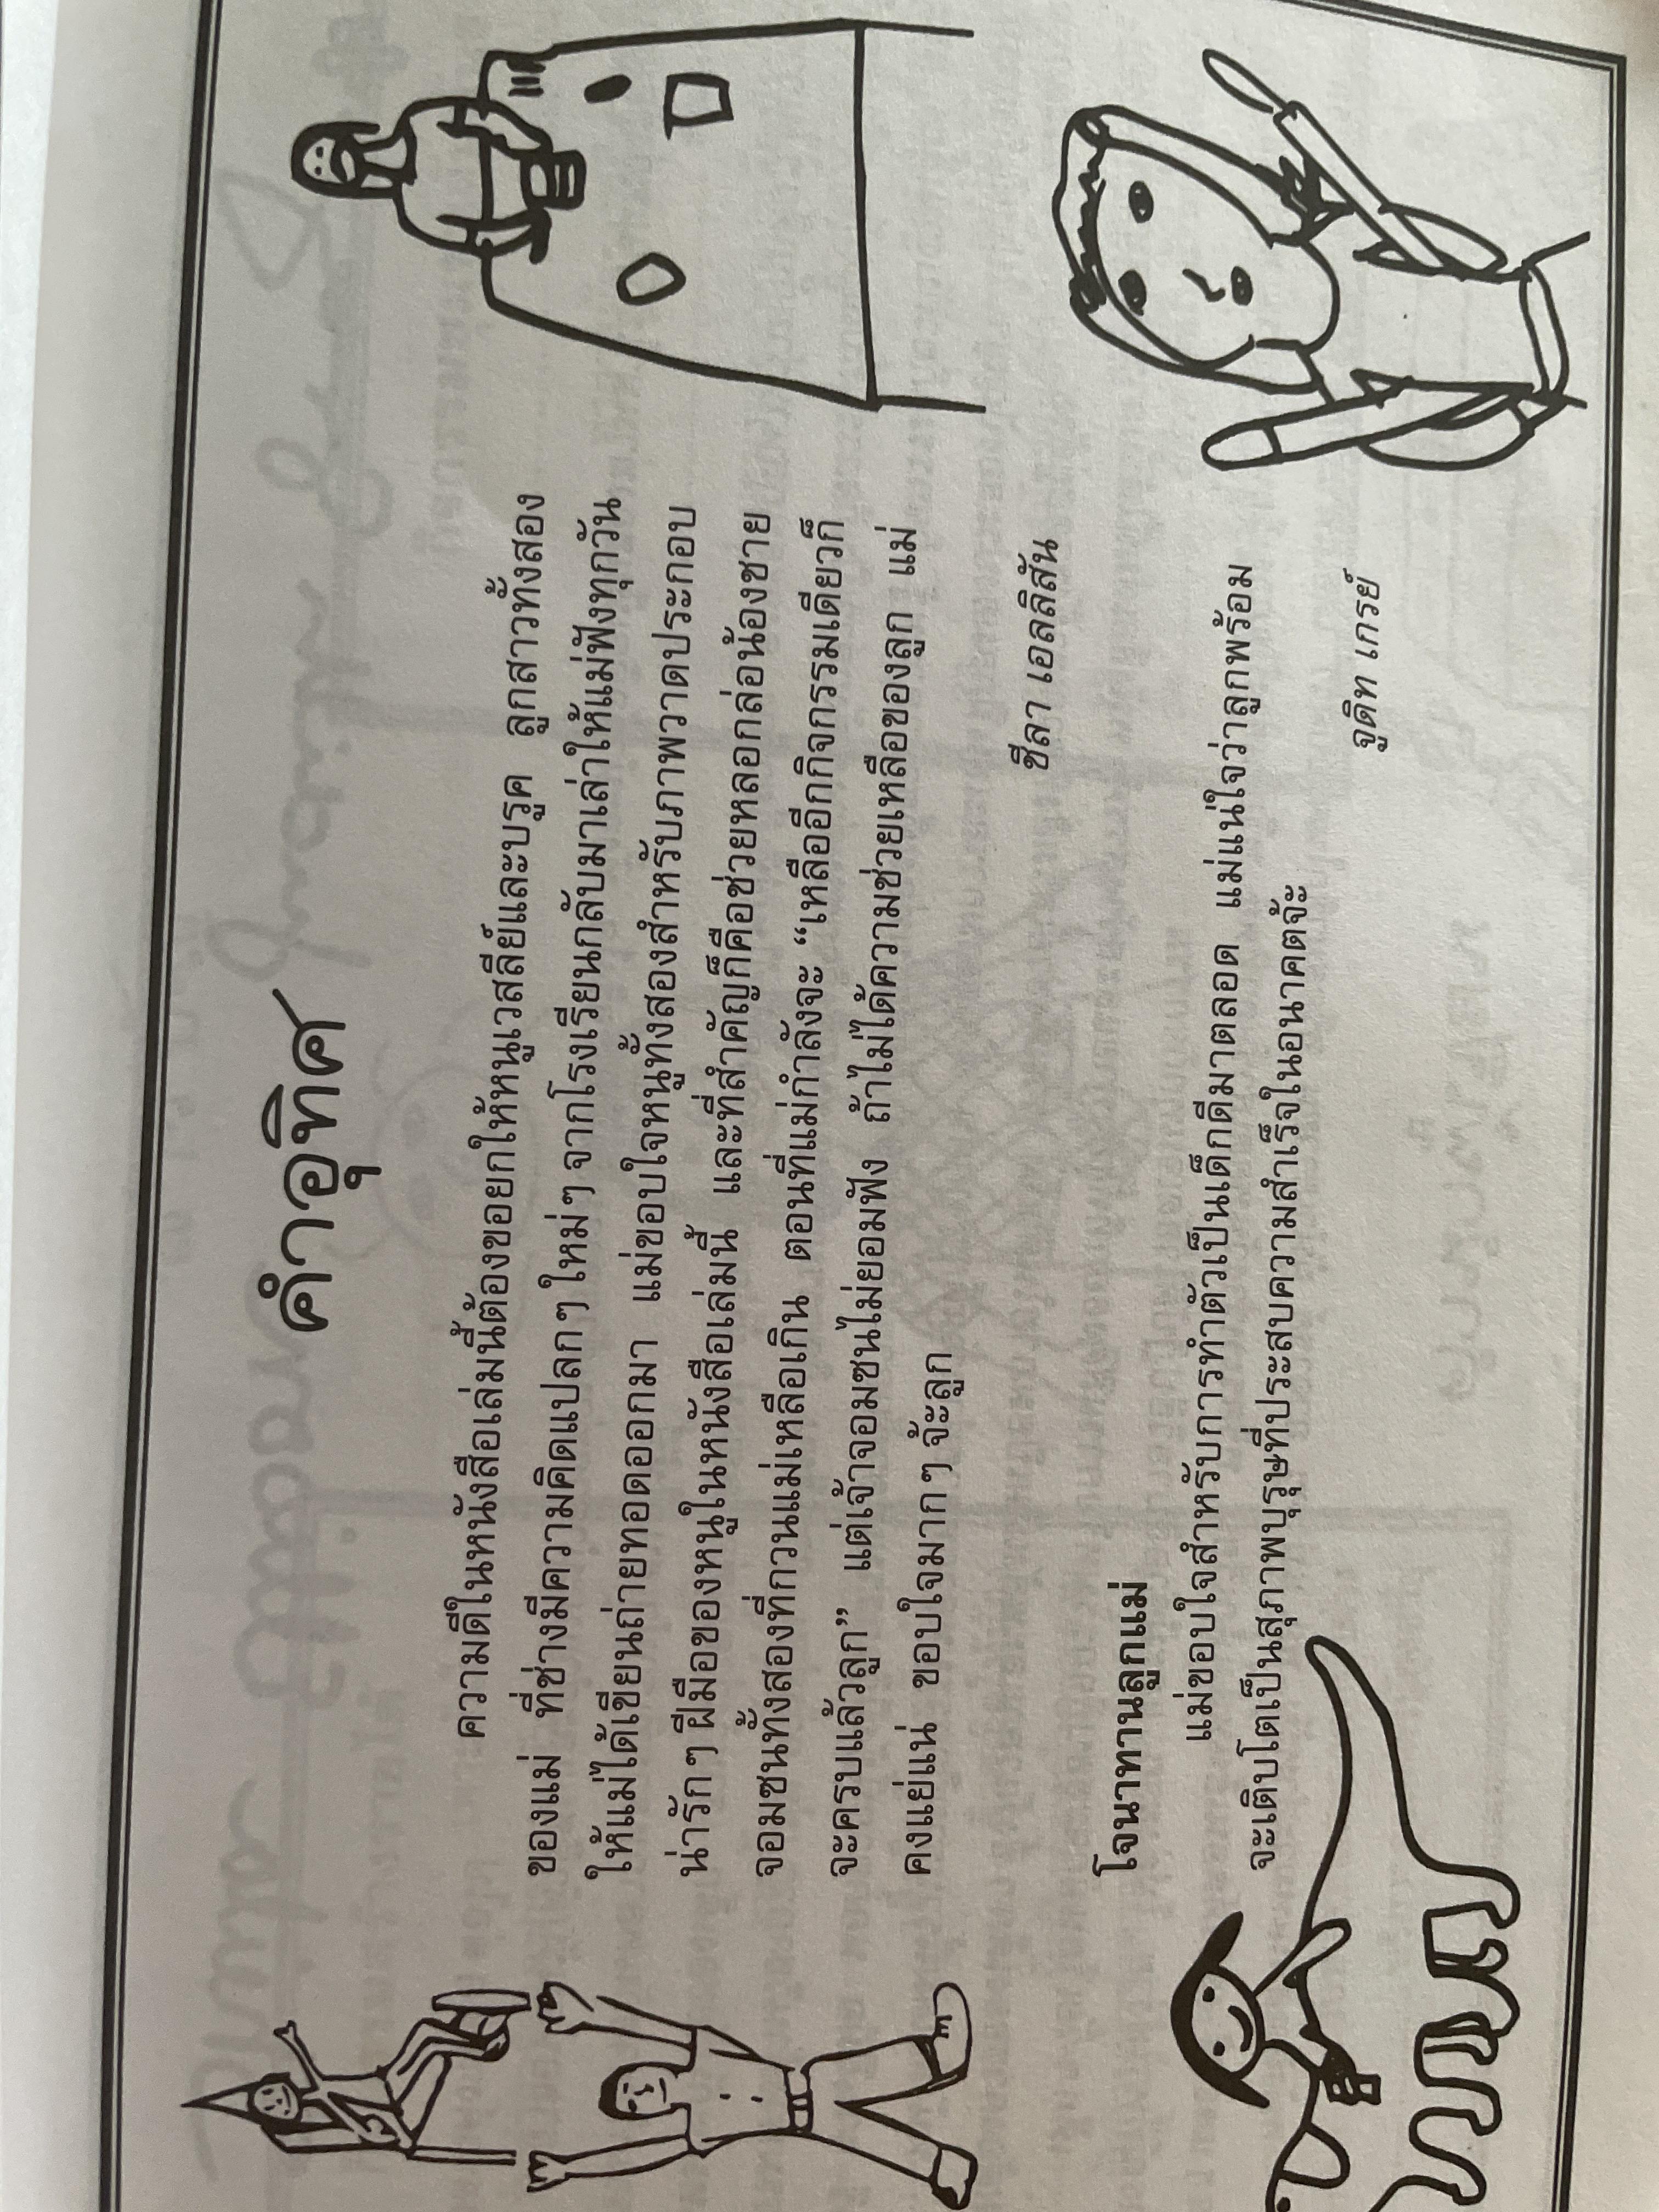 คำอุทิศ
ความดีในหนังสือเล่มนี้ต้องขอยกให้หนูเวสลีย์และบรูค ลูกสาวทั้งสอง
ของแม่ ที่ช่างมีความคิดแปลกๆ ใหม่ๆ จากโรงเรียนกลับมาเล่าให้แม่ฟังทุกวัน
ให้แม่ได้เขียนถ่ายทอดออกมา แม่ขอบใจหนูทั้งสองสำหรับภาพวาดประกอบ
น่ารักๆ ฝีมือของหนูในหนังสือเล่มนี้ และที่สำคัญก็คือช่วยหลอกล่อน้องชาย
จอมซนทั้งสองที่กวนแม่เหลือเกิน ตอนที่แม่กำลังจะ “เหลืออีกกิจกรรมเดียวก็
จะครบแล้วลูก” แต่เจ้าจอมซนไม่ยอมฟัง ถ้าไม่ได้ความช่วยเหลือของลูก แม่
คงแย่แน่ ขอบใจมากๆ จ้ะลูก
ชีลา เอลลิสัน
โจนาทานลูกแม่
แม่ขอบใจสำหรับการทำตัวเป็นเด็กดีมาตลอด แม่แน่ใจว่าลูกพร้อม
จะเติบโตเป็นสุภาพบุรุษที่ประสบความสำเร็จในอนาคตจ้ะ
จูดิท เกรย์